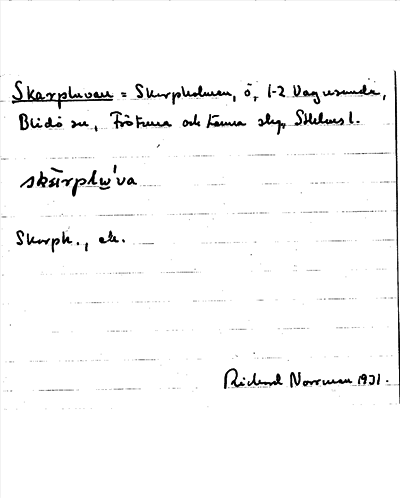 Skarpluvan = Skarpholmen, ö, 1-2 Vagnsunda,
Blidö sn, Frötuna och Länna skg, Sthlms l.
skärplω'va
Skarph., ek.
Rickard Norrman 1931.